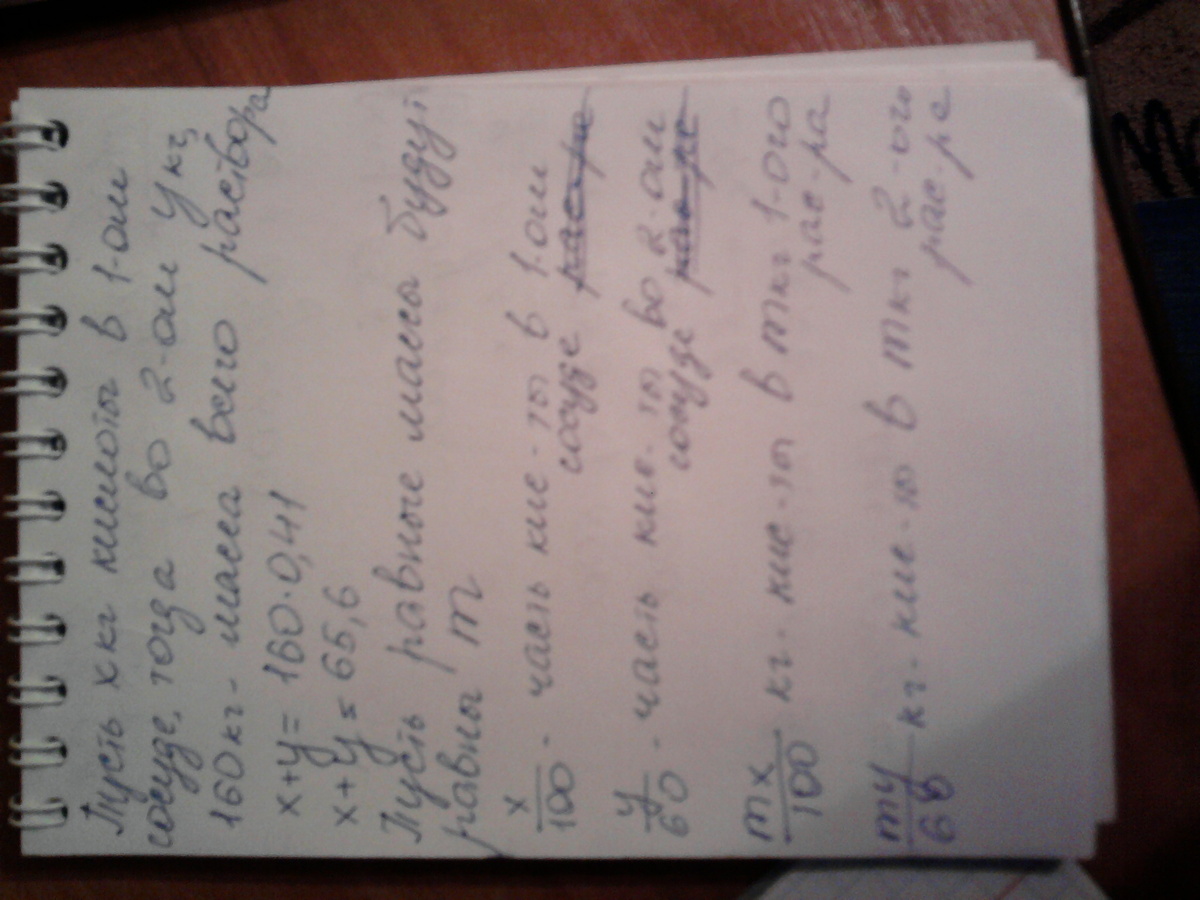 Пусть x кг кислоты в 1-ом
сосуде, тогда во 2-ом y кг,
160 кг - масса всего раствора
x+y = 160·0,41
x+y = 65,6
Пусть равные массы будут
равны m
x/100 - часть кис-ты в 1-ом
сосуде
y/60 - часть кис-ты во 2-ом
сосуде
mx/100 кг - кис-ты в m кг 1-ого
рас-ра
my/60 кг - кис-ты в m кг 2-ого
рас-ра